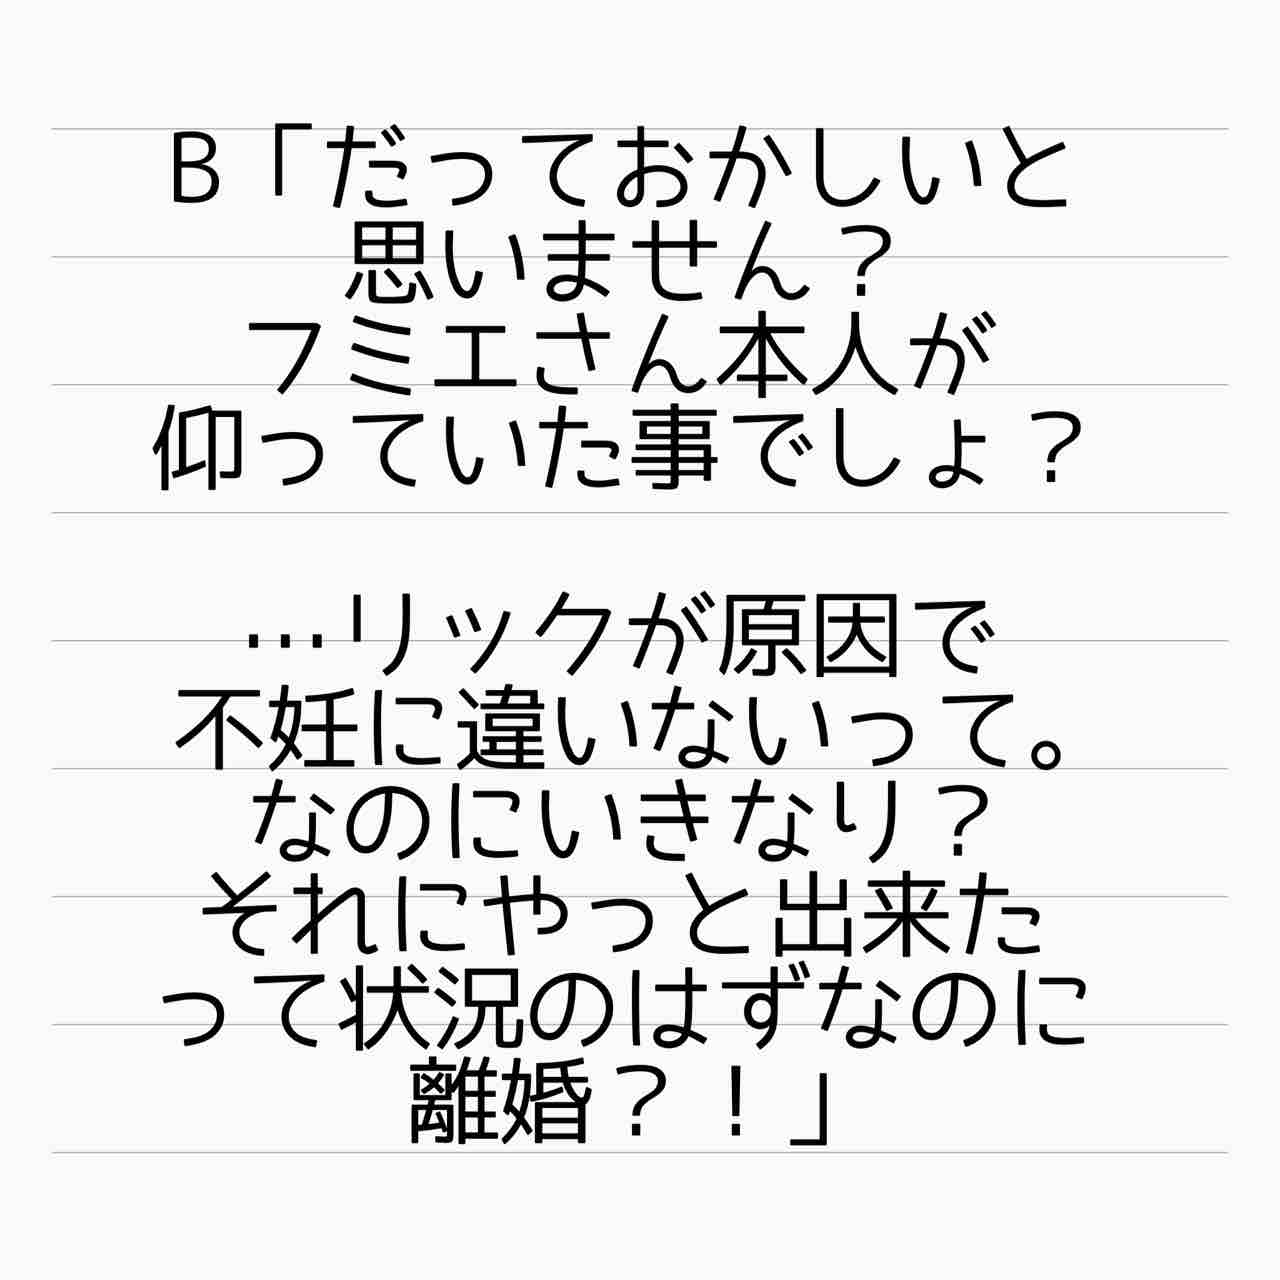 B「だっておかしいと
思いません？
フミエさん本人が
仰っていた事でしょ？
…リックが原因で
不妊に違いないって。
なのにいきなり？
それにやっと出来た
って状況のはずなのに
離婚？！」